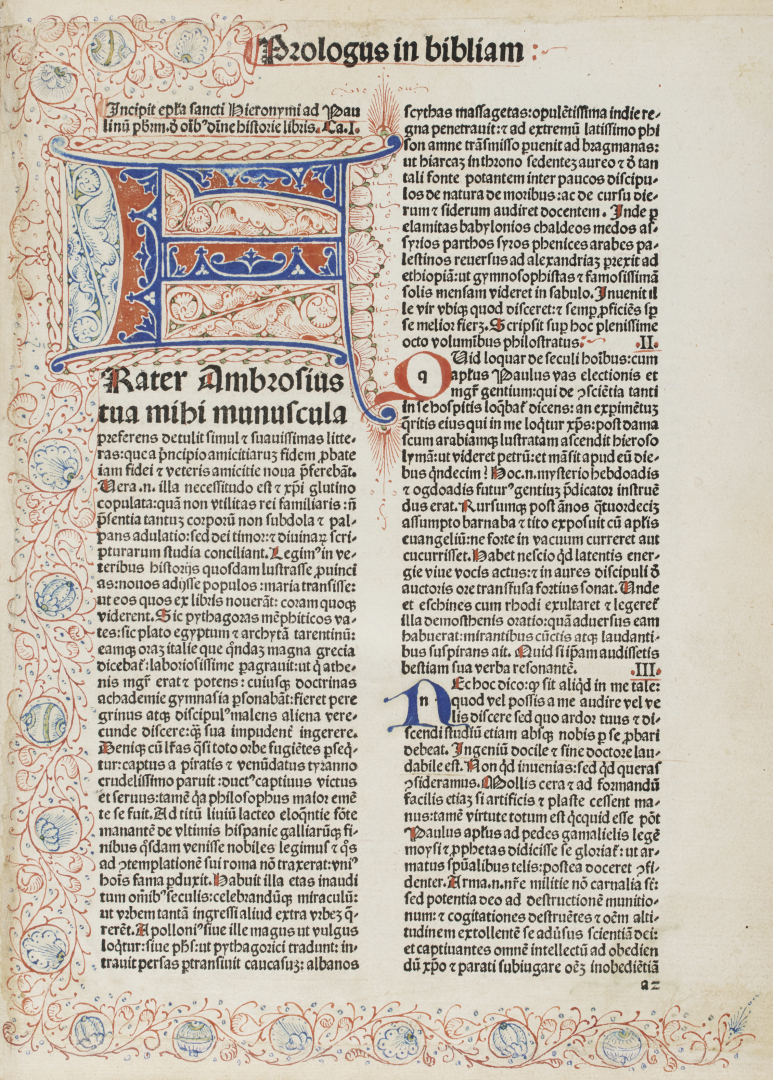 Prologus in bibliam :
Incipit epl̃a sancti Hieronymi ad Pau
linũ pb̃rm. ð oĩbꝰ diuĩne historie libris. Ca.I.
FRater Ambrosius
tua mihi munuscula
preferens detulit simul ⁊ suauissimas litte-
ras: que a p̃ncipio amicitiaruȝ fidem ꝓbate
iam fidei ⁊ veteris amicitie noua p̃ferebãt.
Uera.n. illa necessitudo est ⁊ xp̃i glutino
copulata: quã non vtilitas rei familiaris: ñ
p̃sentia tantuȝ corporũ non subdola ⁊ pal-
pans adulatio: sed dei timor: ⁊ diuinaꝝ scri-
pturarum studia conciliant. Legimꝰ in ve-
teribus historijs quosdam lustrasse ꝓuinci
as: nouos adijsse populos: maria transisse:
ut eos quos ex libris nouerãt: coram quoqȝ
viderent. Sic pythagoras mẽphiticos va-
tes: sic plato egyptum ⁊ archytã tarentinũ:
eamqȝ oraȝ italie que q̃ndaȝ magna grecia
dicebat̃: laboriosissime ꝑagrauit: ut q̃ athe-
nis mgr̃ erat ⁊ potens: cuiusqȝ doctrinas
achademie gymnasia ꝑsonabãt: fieret pere
grinus atqȝ discipulꝰ malens aliena vere-
cunde discere: q̃ȝ sua impudent̃ ingerere.
Deniqȝ cũ lr̃as q̃si toto orbe fugiẽtes ꝑseq̃-
tur: captus a piratis ⁊ venũdatus tyranno
crudelissimo paruit: ductꝰ captiuus victus
et seruus: tamẽ q̃a philosophus maior emẽ
te se fuit. Ad titũ liuiũ lacteo eloq̃ntie fõte
manantẽ de vltimis hispanie galliarũqȝ fi-
nibus q̃sdam venisse nobiles legimus: ⁊ q̃s
ad ꝯtemplationẽ sui roma nõ traxerat: vniꝰ
hoĩs fama ꝑduxit. Habuit illa etas inaudi
tum oĩnibꝰ seculis: celebrandũqȝ miraculũ:
ut vrbem tantã ingressi aliud extra vrbeȝ q̃-
rerẽt. Apolloniꝰ siue ille magus ut vulgus
loq̃tur: siue ph̃s: ut pythagorici tradunt: in-
trauit persas ꝑtransiuit caucasuȝ: albanos
scythas massagetas: opulẽtissima indie re-
gna penetrauit: ⁊ ad extremũ latissimo phi
son amne trãsmisso ꝑuenit ad bragmanas:
ut hiarcaȝ in throno sedenteȝ aureo ⁊ ð tan
tali fonte potantem inter paucos discipu-
los de natura de moribus: ac de cursu die-
rum ⁊ siderum audiret docentem. Inde ꝑ
elamitas babylonios chaldeos medos as-
syrios parthos syros phenices arabes pa-
lestinos reuersus ad alexandriaȝ ꝑrexit ad
ethiopiã: ut gymnosophistas ⁊ famosissimã
solis mensam videret in sabulo. Inuenit il
le vir vbiqȝ quod disceret: ⁊ semꝑ ꝓficiẽs sꝑ
se melior fieȝ. Scripsit suꝑ hoc plenissime
octo volumĩbus philostratus: .II.
q QUid loquar de seculi hoĩbus: cum
apl̃us Paulus vas electionis et
mgr̃ gentium: qui de ꝯsciẽtia tanti
in se hospitis loq̃bat̃ dicens: an exꝑimẽtuȝ
q̃ritis eius qui in me loq̃tur xp̃s: post dama
scum arabiamqȝ lustratam ascendit hieroso
lymã: ut videret petrũ: et mãsit apud eũ die-
bus q̃ndecim? Hoc.n. mysterio hebdoadis
⁊ ogdoadis futurꝰ gentiuȝ p̃dicator instruẽ
dus erat. Rursumqȝ post ãnos q̃tuordeciȝ
assumpto barnaba ⁊ tito exposuit cũ apl̃is
euangeliũ: ne forte in vacuum curreret aut
cucurrisset. Habet nescio qd̃ latentis ener-
gie viue vocis actus: ⁊ in aures discipuli ð
auctoris ore transfusa fortius sonat. Unde
et eschines cum rhodi exultaret ⁊ legeret̃
illa demosthenis oratio: quã aduersus eam
habuerat: mirantibus cũctis atqȝ laudanti-
bus suspirans ait. Quid si ip̃am audissetis
bestiam sua verba resonantẽ. .III.
n NEc hoc dico: qꝫ sit aliq̃d in me tale:
quod vel possis a me audire vel ve
lis discere sed quo ardor tuus ⁊ di-
scendi studiũ etiam absqȝ nobis ꝑ se ꝓbari
debeat. Ingeniũ docile ⁊ sine doctore lau-
dabile est. Non qd̃ inuenias: sed qd̃ queras
ꝯsideramus. Mollis cera ⁊ ad formandũ
facilis etiaȝ si artificis ⁊ plaste cessent ma-
nus: tamẽ virtute totum est q̃cquid esse põt
Paulus apl̃us ad pedes gamalielis legẽ
moysi ⁊ ꝓphetas didicisse se gloriat̃: ut ar-
matus spũalibus telis: postea doceret ꝯfi-
denter. Arma.n. nr̃e militie nõ carnalia st̃:
sed potentia deo ad destructionẽ munitio-
num: ⁊ cogitationes destruẽtes ⁊ oẽm alti-
tudinem extollentẽ se aduersus scientiã dei:
et captiuantes omnẽ intellectũ ad obedien
dũ xp̃o ⁊ parati subiugare oẽȝ inobediẽtiã
a 2